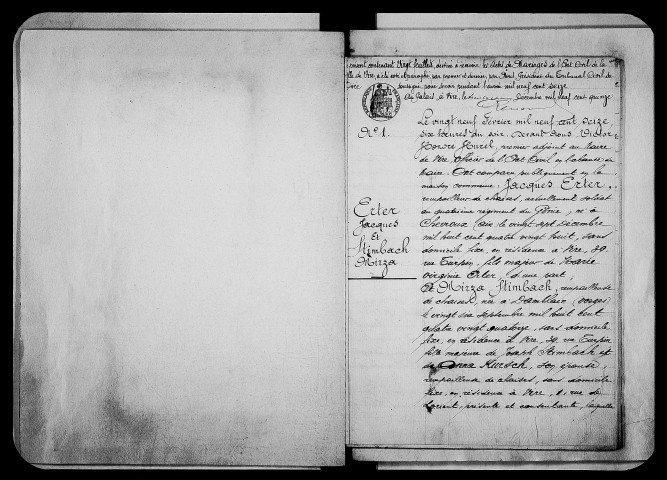 contenant Vingt feuillets, destiné à recevoir les Actes de Mariages de l'Etat Civil de la
Ville de Vire, a été coté et paraphé, par premier et dernier, par Nous, Président du Tribunal Civil de
Vire soussigné, pour servir pendant l'année mil neuf cent seize
Au Palais, à Vire, le Décembre mil neuf cent quinze
N° 1.
Erter
Jacques
et
Stimbach
Mirza
Le vingt neuf février mil neuf cent seize,
six heures du soir, devant nous, Victor
Honoré Huril, premier adjoint au Maire
de Vire, Officier de l'Etat Civil en l'absence du
Maire. Ont comparu publiquement en la
maison commune: Jacques Erter,
rempailleur de chaises, actuellement soldat
au quatrième régiment du Génie, né à
Chevroux (Ain) le vingt sept décembre
mil huit cent quatre vingt huit, sans
domicile fixe, en résidence à Vire, 39,
rue Turpin, fils majeur de Marie
Virginie Erter, d'une part,
Et Mirza Stimbach, rempailleuse
de chaises, née à Damblain (Vosges)
le vingt six septembre mil huit cent
quatre vingt quatorze, sans domicile
fixe, en résidence à Vire, 39, rue Turpin
fille majeure de Joseph Stimbach et
de Anna Kursch, son épouse,
rempailleuse de chaises, sans domicile
fixe, en résidence à Vire, rue de
Lorient, présente et consentante, laquelle